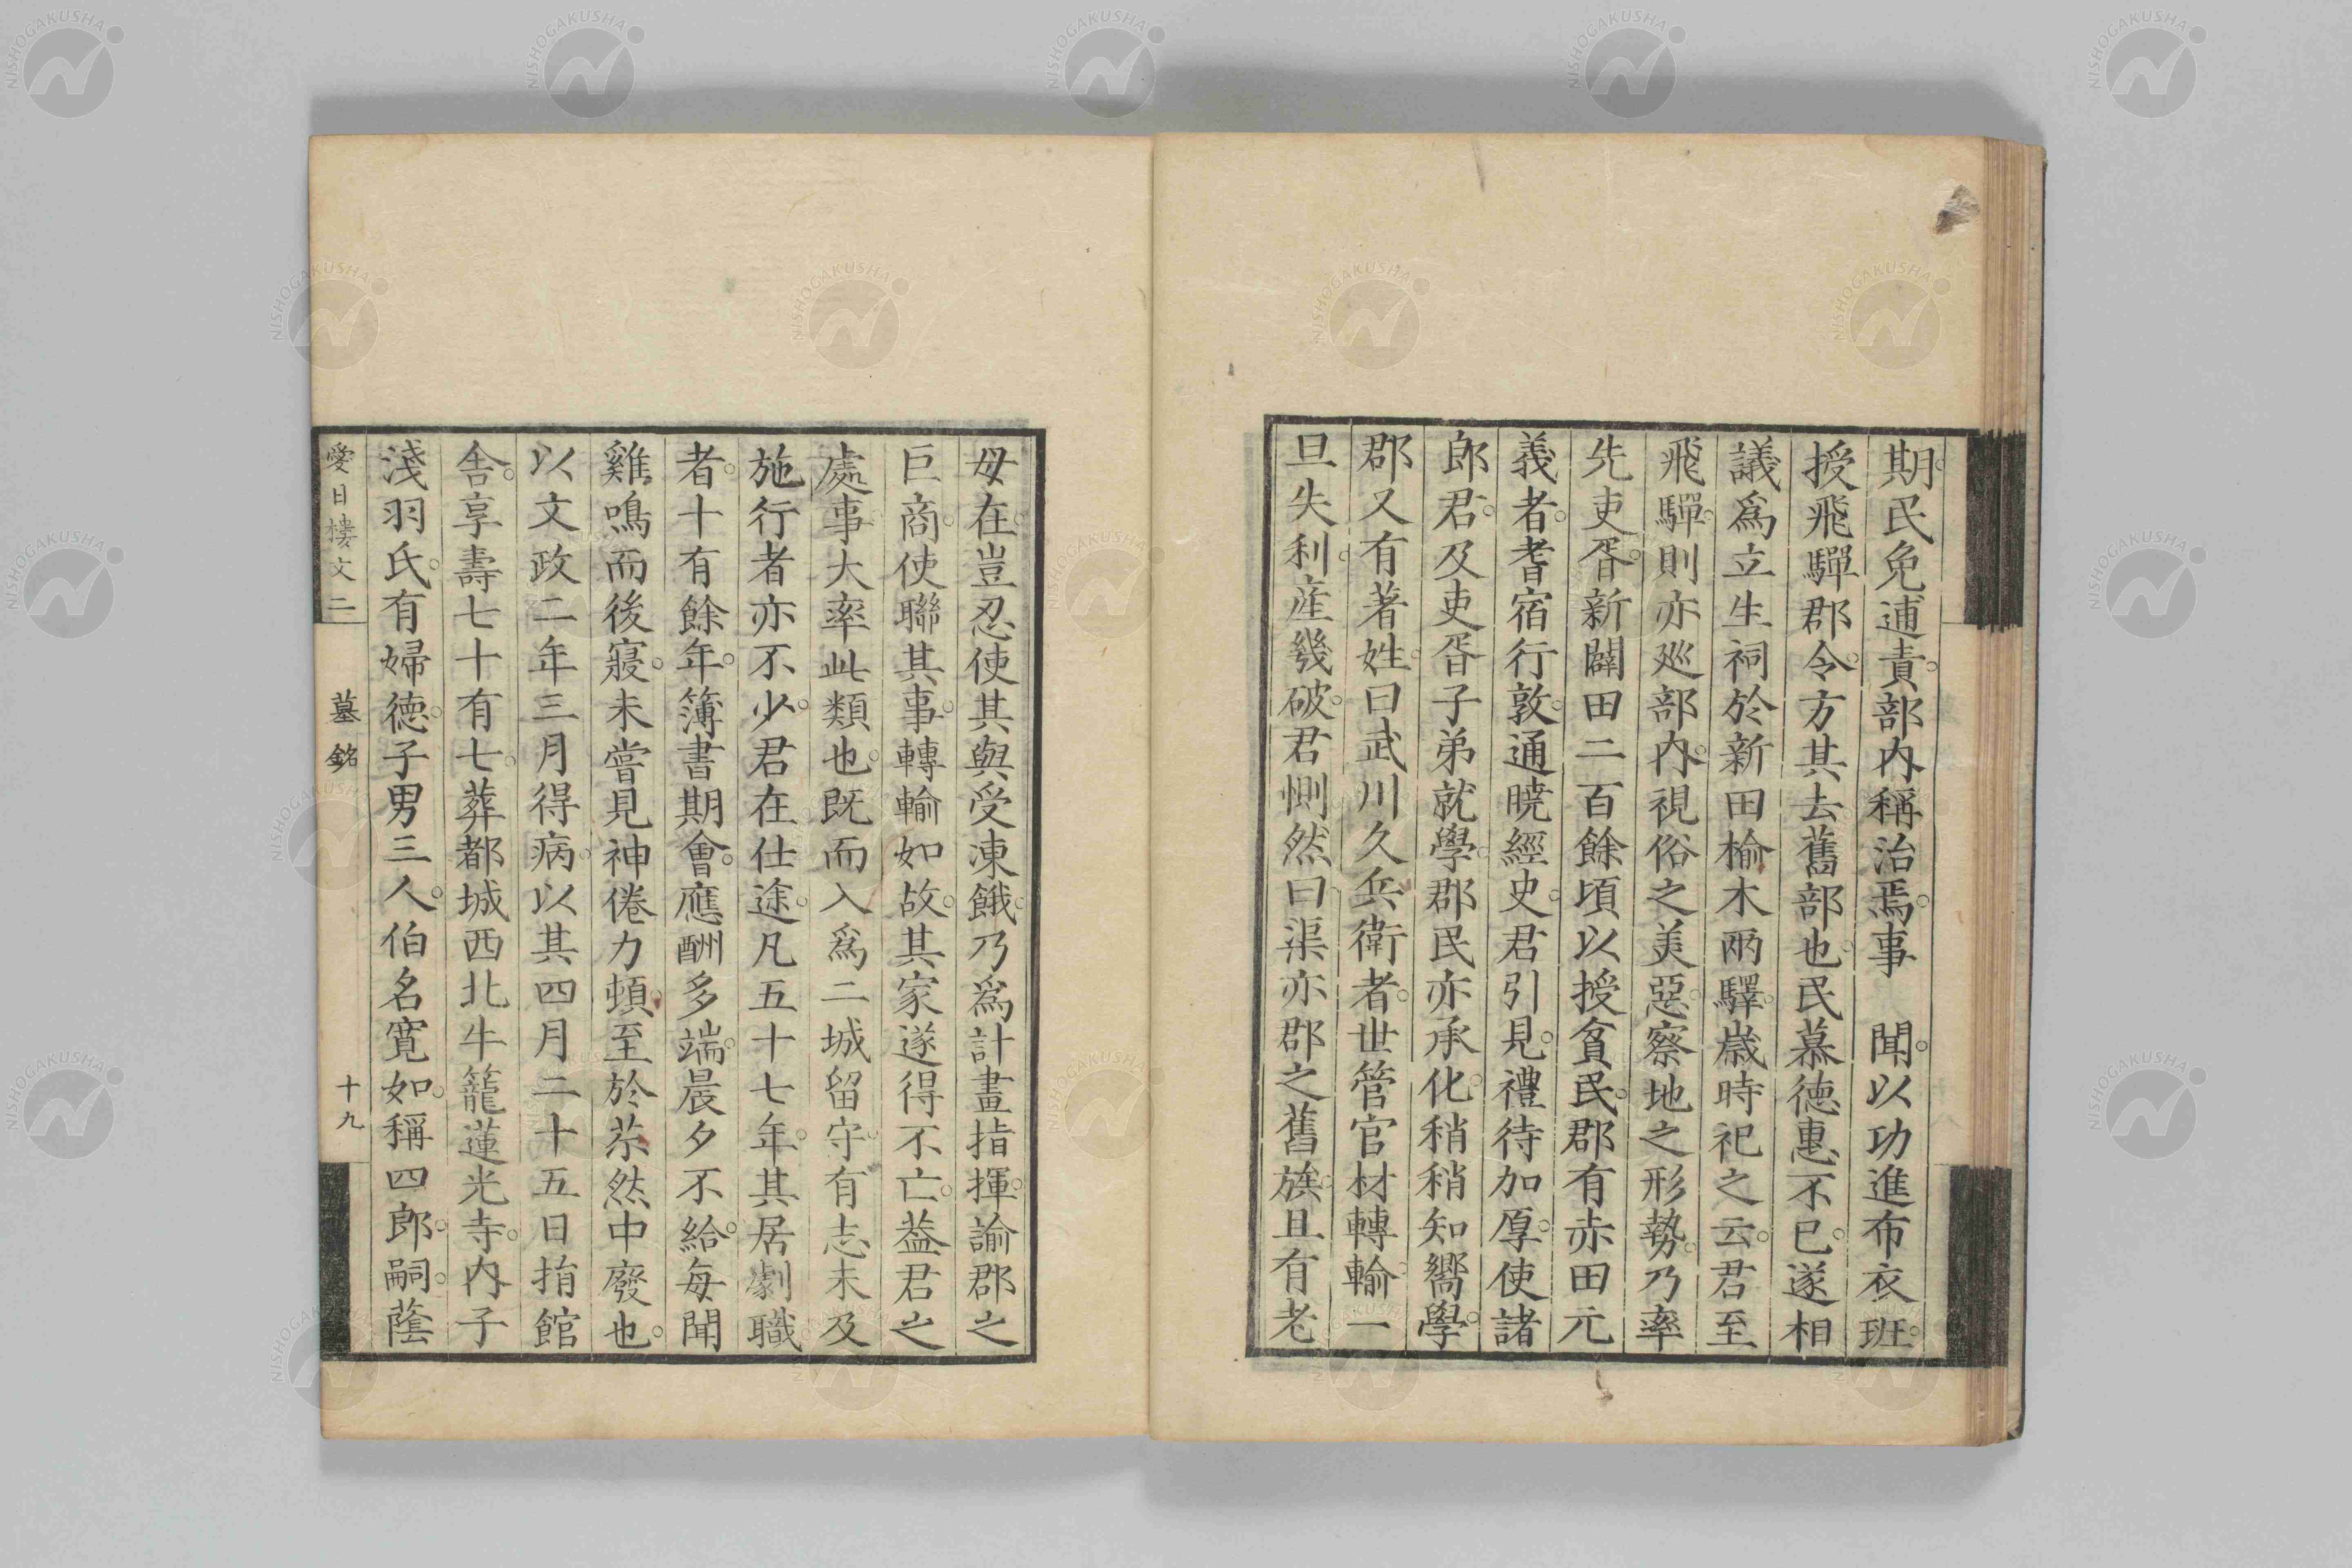 期。民免逋責。部内稱治焉。事　聞。以功進布衣班。
授飛驒郡令。方其去舊部也。民慕德惠不已。遂相
議爲立生祠於新田榆木兩驛。歲時祀之云。君至
飛驒。則亦廵部内。視俗之美惡。察地之形勢。乃率
先吏胥。新闢田二百餘頃以授貧民。郡有赤田元
義者。耆宿行敦。通曉經史。君引見。禮待加厚。使諸
郎君。及吏胥子弟就學。郡民亦承化。稍稍知嚮學。
郡又有著姓。曰武川久兵衛者。世管官材轉輸。一
旦失利。産幾破。君惻然曰。渠亦郡之舊族。且有老
母在。豈忍使其與受凍餓。乃爲計畫指揮。諭郡之
巨商。使聯其事。轉輸如故。其家遂得不亡。蓋君之
處事。大率此類也。既而入爲二城留守。有志未及
施行者亦不少。君在仕途。凡五十七年。其居劇職
者。十有餘年。簿書期會。應酬多端。晨夕不給。每聞
雞鳴而後寢。未嘗見神倦力頓。至於苶然中廢也。
以文政二年三月得病。以其四月二十五日捐館
舍。享壽七十有七。葬都城西北牛籠蓮光寺。内子
淺羽氏。有婦德。子男三人。伯名寬如。稱四郎。嗣。蔭
愛日樓文二　墓銘　十九